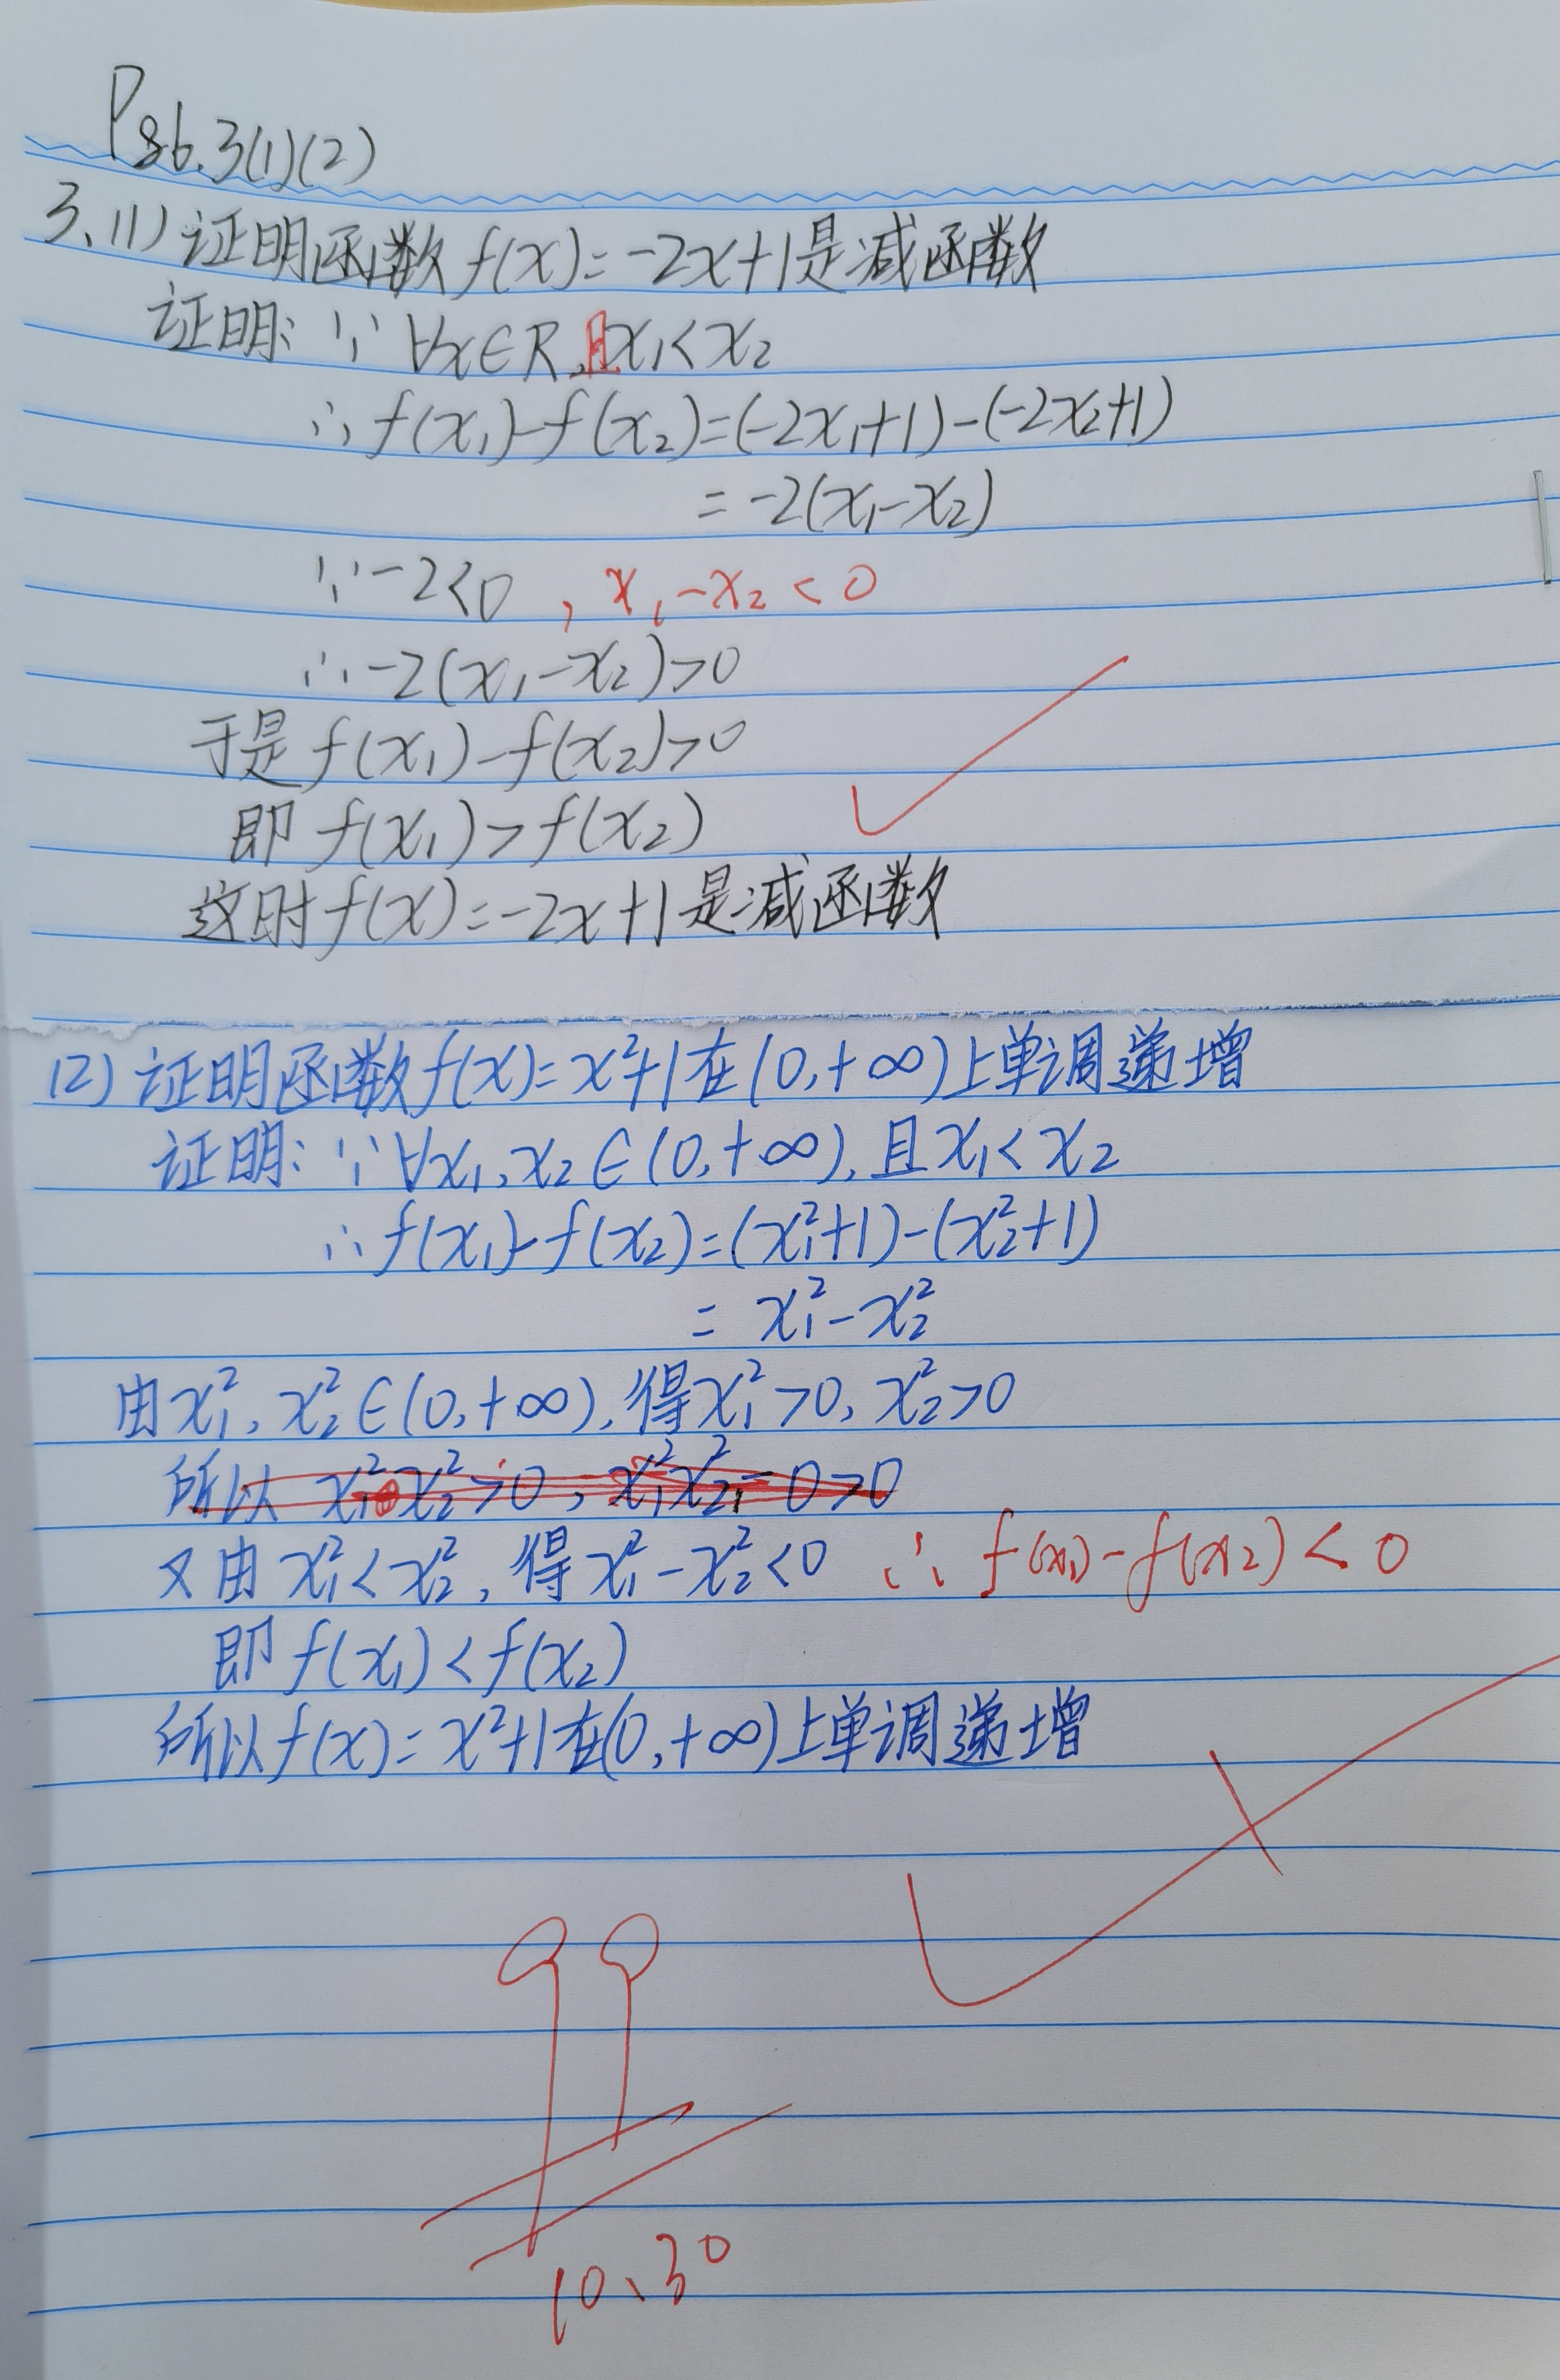 P86.3(1)(2)
3.(1)证明函数f(x)=-2x+1是减函数
证明:∵∀x∈R,且x₁<x₂
∴f(x₁)-f(x₂)=(-2x₁+1)-(-2x₂+1)
=-2(x₁-x₂)
∵-2<0,x₁-x₂<0
∴-2(x₁-x₂)>0
于是f(x₁)-f(x₂)>0
即f(x₁)>f(x₂)
这时f(x)=-2x+1是减函数
(2)证明函数f(x)=x²+1在(0,+∞)上单调递增
证明:∵∀x₁,x₂∈(0,+∞),且x₁<x₂
∴f(x₁)-f(x₂)=(x₁²+1)-(x₂²+1)
=x₁²-x₂²
由x₁²,x₂²∈(0,+∞),得x₁²>0,x₂²>0
所以
又由x₁²<x₂²,得x₁²-x₂²<0 ∴f(x₁)-f(x₂)<0
即f(x₁)<f(x₂)
所以f(x)=x²+1在(0,+∞)上单调递增
99
10、30